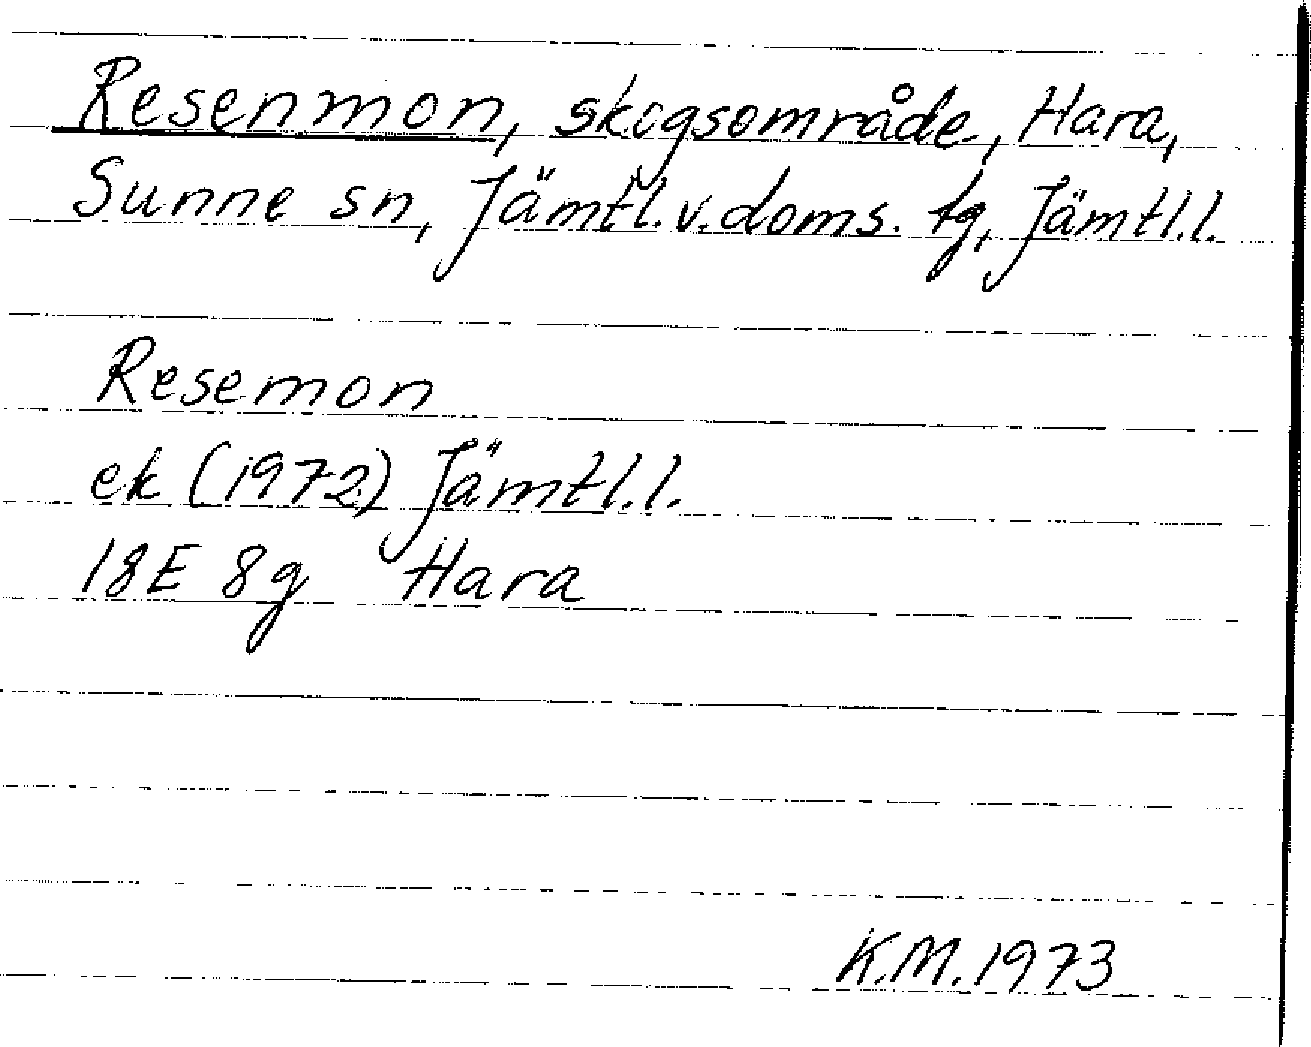 Resenmon, skogsområde, Hara,
Sunne sn, Jämtl.v.doms. tg, Jämtl.l.
Resemon
ek (1972) Jämtl.l.
18E 8g Hara
K.M.1973